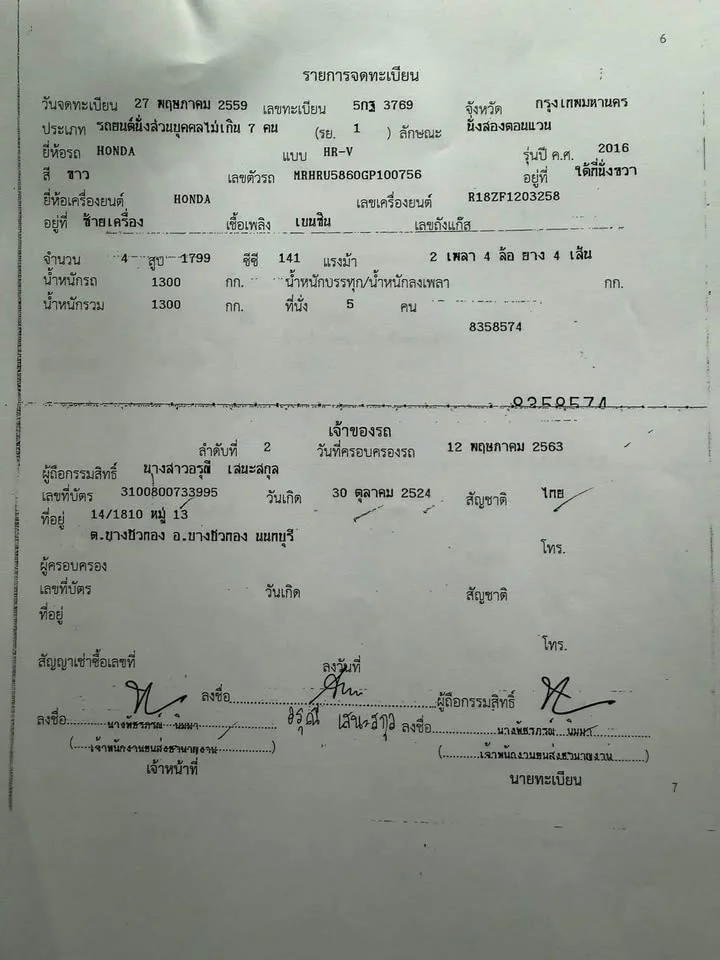 6
รายการจดทะเบียน
วันจดทะเบียน 27 พฤษภาคม 2559 เลขทะเบียน 5กฐ 3769 จังหวัด กรุงเทพมหานคร
ประเภท รถยนต์นั่งส่วนบุคคลไม่เกิน 7 คน (รย. 1 ) ลักษณะ นั่งสองตอนแวน
ยี่ห้อรถ HONDA แบบ HR-V รุ่นปี ค.ศ. 2016
สี ขาว เลขตัวรถ MRHRU5860GP100756 อยู่ที่ ใต้ที่นั่งขวา
ยี่ห้อเครื่องยนต์ HONDA เลขเครื่องยนต์ R18ZF1203258
อยู่ที่ ซ้ายเครื่อง เชื้อเพลิง เบนซิน เลขถังแก๊ส
จำนวน 4 สูบ 1799 ซีซี 141 แรงม้า 2 เพลา 4 ล้อ ยาง 4 เส้น
น้ำหนักรถ 1300 กก. น้ำหนักบรรทุก/น้ำหนักลงเพลา กก.
น้ำหนักรวม 1300 กก. ที่นั่ง 5 คน
8358574
8358574
เจ้าของรถ
ลำดับที่ 2 วันที่ครอบครองรถ 12 พฤษภาคม 2563
ผู้ถือกรรมสิทธิ์ นางสาวอรุณี เสนะสกุล
เลขที่บัตร 3100800733995 วันเกิด 30 ตุลาคม 2524 สัญชาติ ไทย
ที่อยู่ 14/1810 หมู่ 13
ต.บางบัวทอง อ.บางบัวทอง นนทบุรี
โทร.
ผู้ครอบครอง
เลขที่บัตร วันเกิด สัญชาติ
ที่อยู่
โทร.
สัญญาเช่าซื้อเลขที่ ลงวันที่
ลงชื่อ ผู้ถือกรรมสิทธิ์
ลงชื่อ นางพัชรภรณ์ นิมมา อรุณี เสนะสกุล ลงชื่อ นางพัชรภรณ์ นิมมา
(เจ้าพนักงานขนส่งชำนาญงาน) (เจ้าพนักงานขนส่งชำนาญงาน)
เจ้าหน้าที่ นายทะเบียน
7